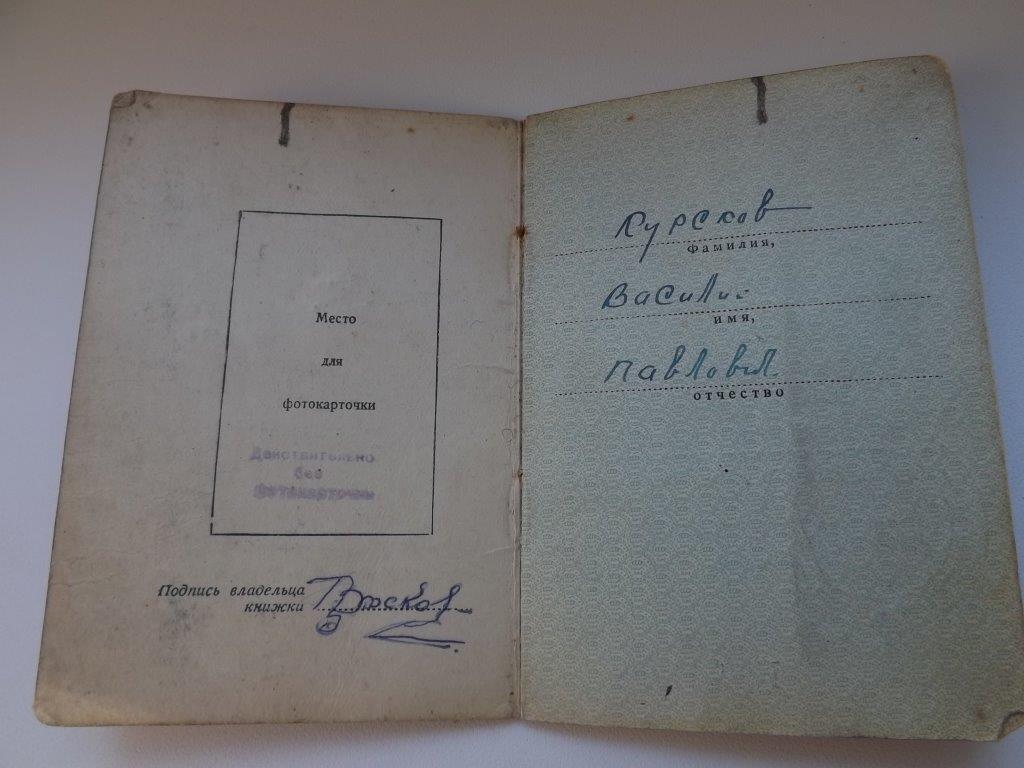 Место
для
фотокарточки
Действительно
без
фотокарточки
Подпись владельца
книжки
Курсков
фамилия,
Василий
имя,
Павлович
отчество